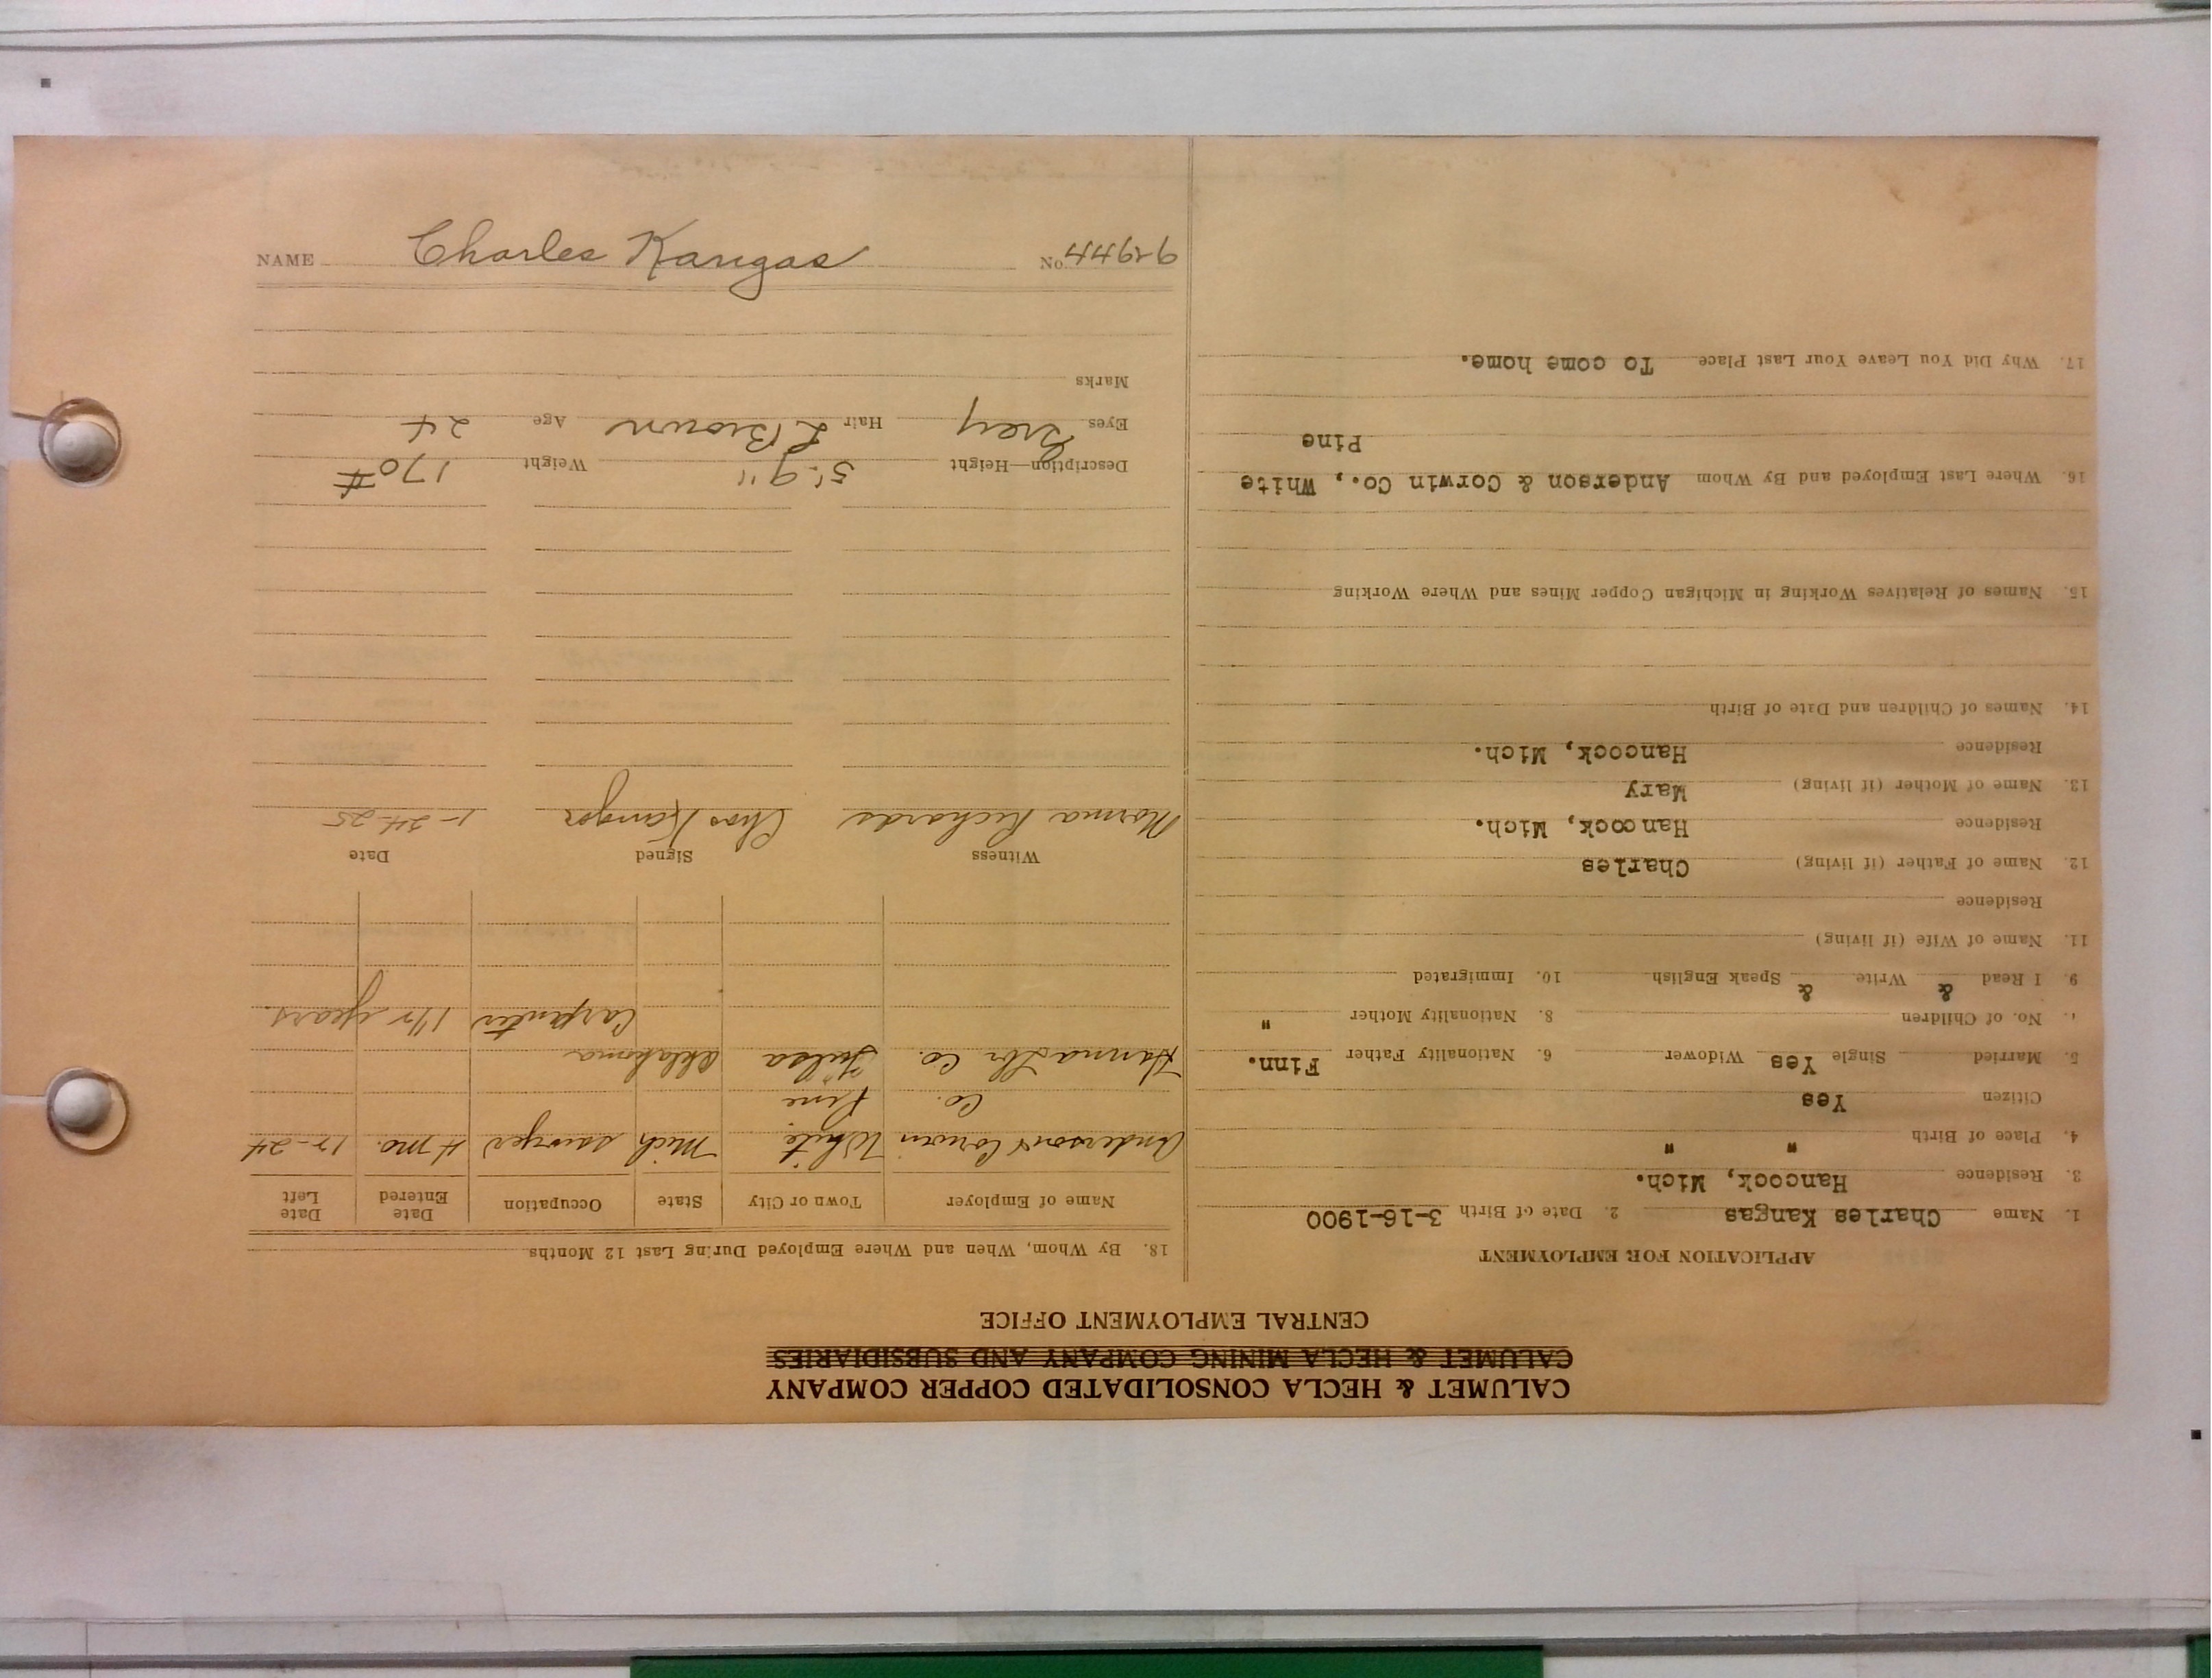 CALUMET & HECLA CONSOLIDATED COPPER COMPANY
CALUMET & HECLA MINING COMPANY AND SUBSIDIARIES
CENTRAL EMPLOYMENT OFFICE
APPLICATION FOR EMPLOYMENT
1. Name Charles Kangas 2. Date of Birth 3-16-1900
3. Residence Hancock, Mich.
4. Place of Birth " "
Citizen Yes
5. Married Single Yes Widower 6. Nationality Father Finn.
No. of Children 8. Nationality Mother "
9. I Read & Write & Speak English 10. Immigrated
11. Name of Wife (if living)
Residence
12. Name of Father (if living) Charles
Residence Hancock, Mich.
13. Name of Mother (if living) Mary
Residence Hancock, Mich.
14. Names of Children and Date of Birth
15. Names of Relatives Working in Michigan Copper Mines and Where Working
16. Where Last Employed and By Whom Anderson & Corwin Co., White
Pine
17. Why Did You Leave Your Last Place To come home.
18. By Whom, When and Where Employed During Last 12 Months
Name of Employer Town or City State Occupation Date Entered Date Left
Anderson & Corwin White Mich sawyer 4 mo. 12-24
Co. Pine
Hanna Lbr Co. Tulsa Oklahoma
Carpenter 1½ years
Witness Signed Date
Norma Richards Chas Kangas 1-24-25
Description—Height 5'-9" Weight 170#
Eyes Grey Hair L Brown Age 24
Marks
NAME Charles Kangas No.